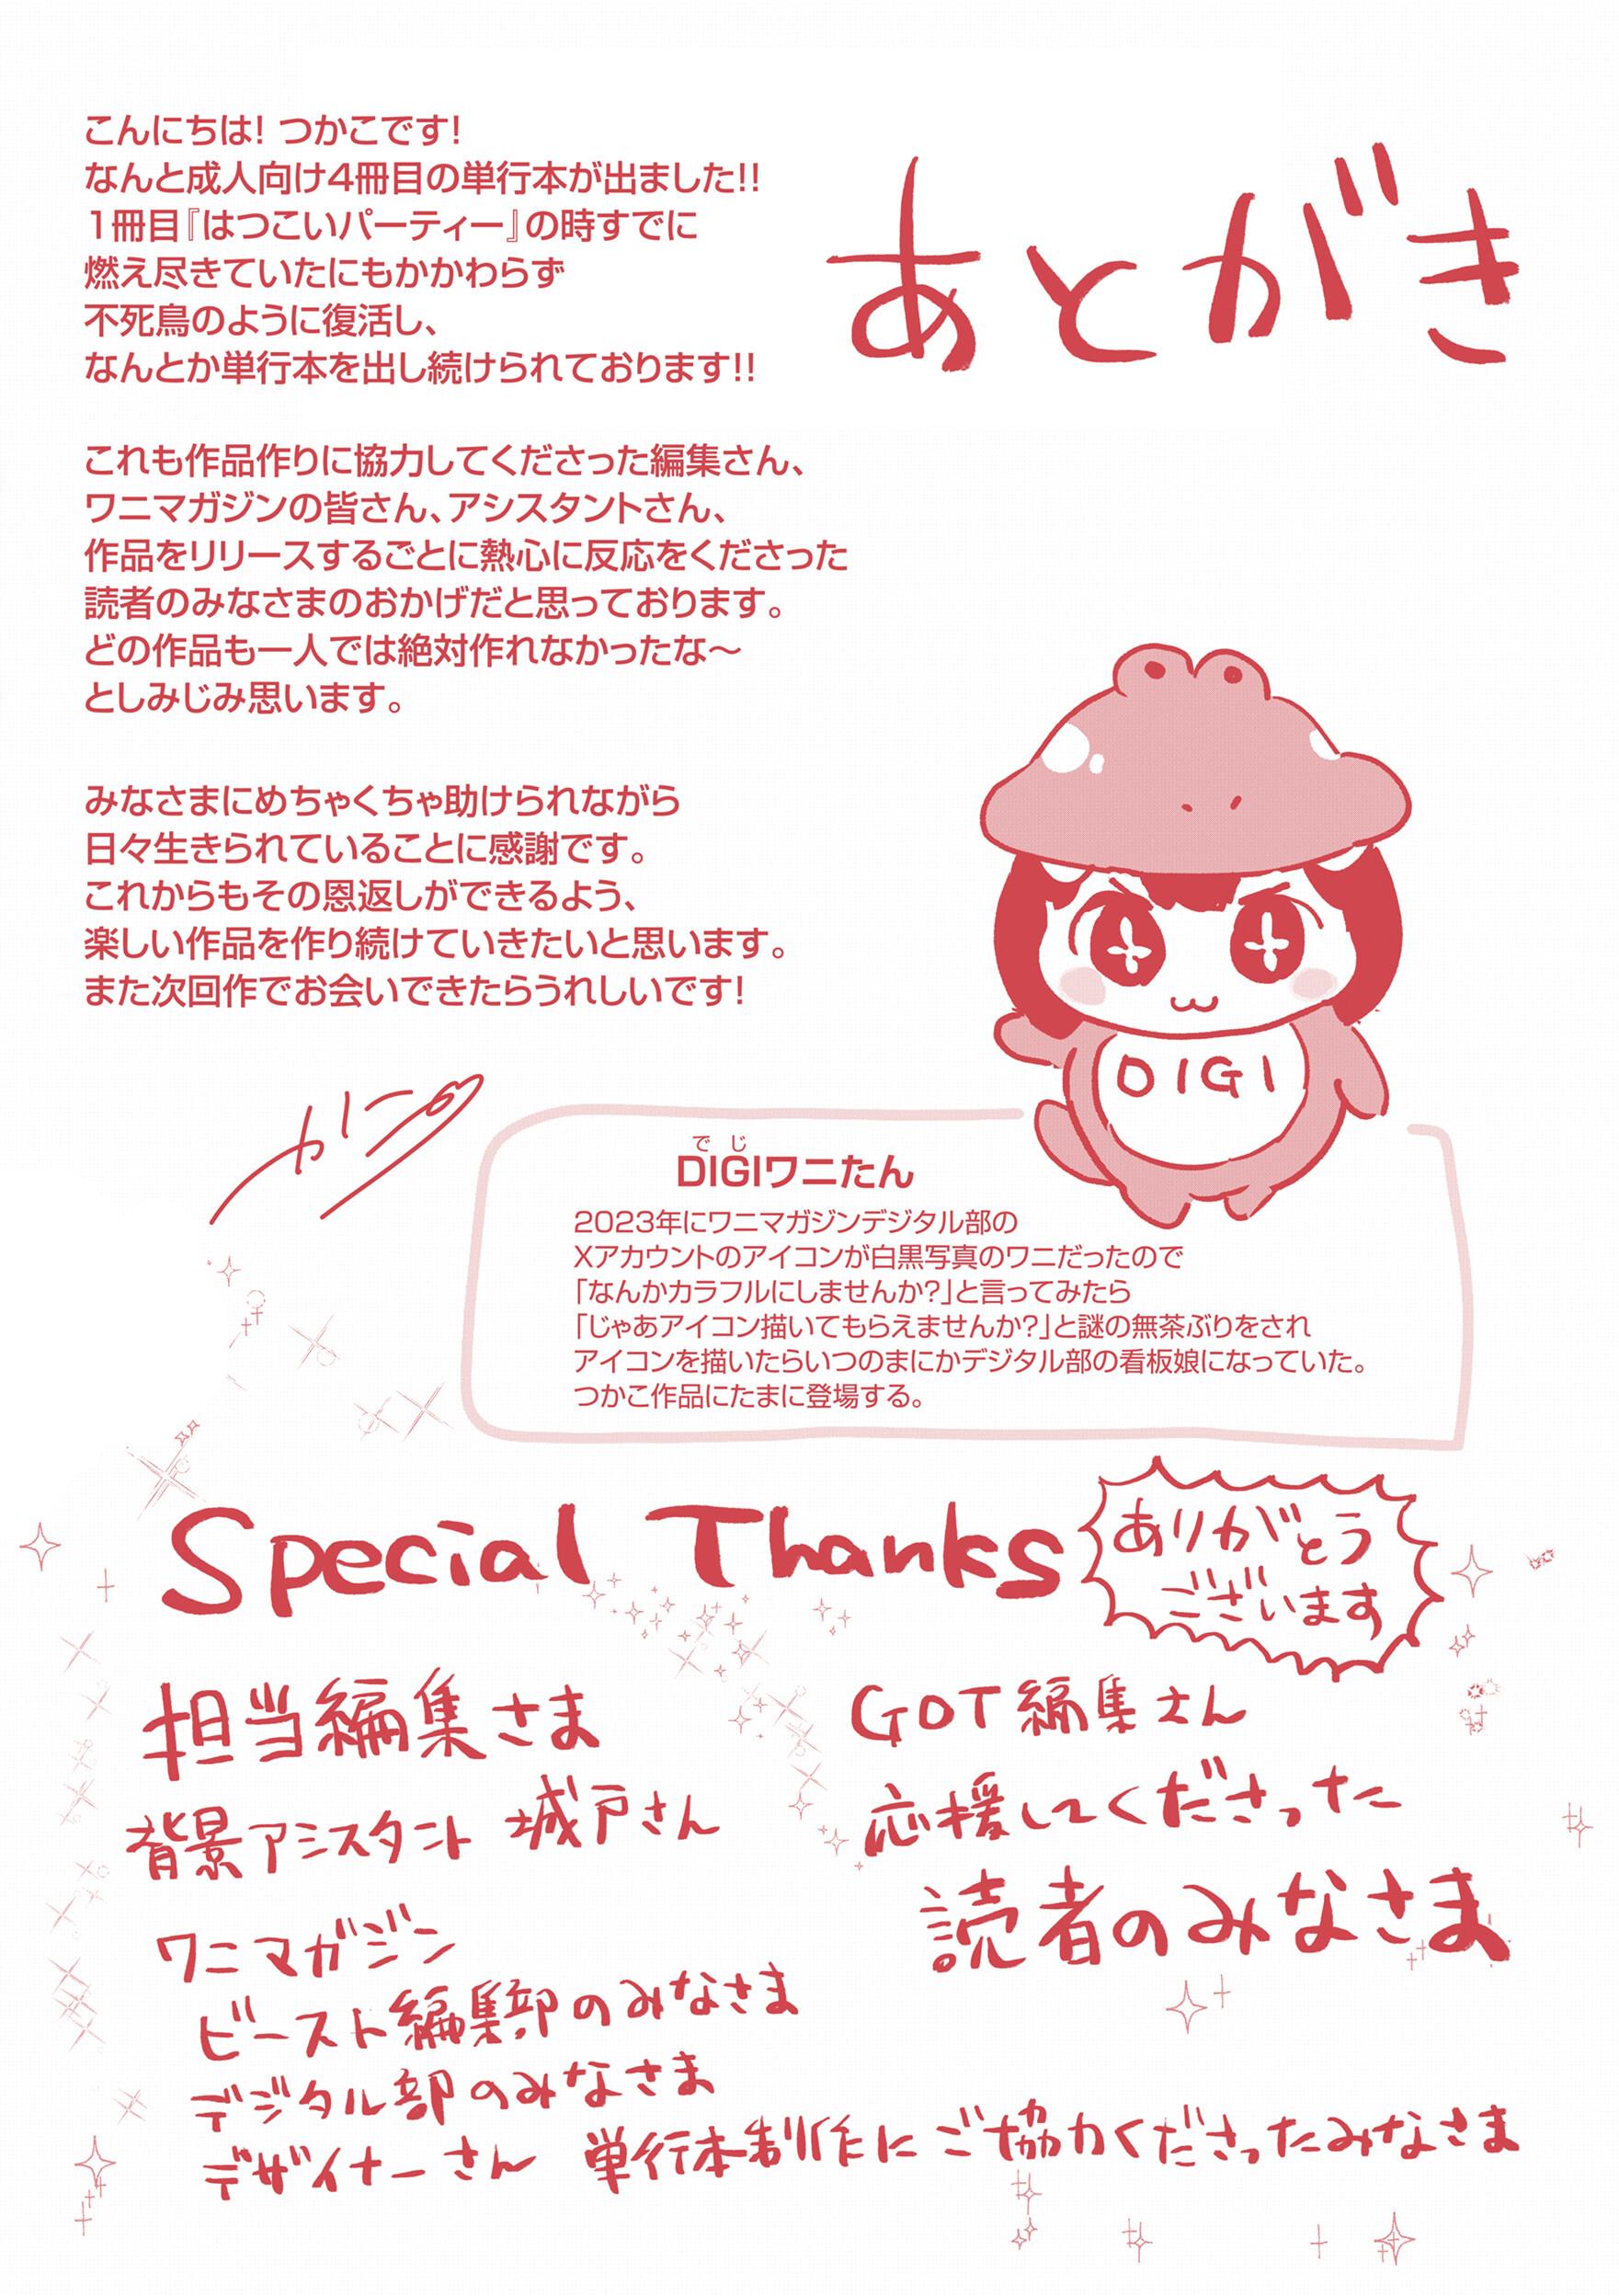 あとがき
こんにちは! つかこです!
なんと成人向け4冊目の単行本が出ました!!
1冊目『はつこいパーティー』の時すでに
燃え尽きていたにもかかわらず
不死鳥のように復活し、
なんとか単行本を出し続けられております!!
これも作品作りに協力してくださった編集さん、
ワニマガジンの皆さん、アシスタントさん、
作品をリリースするごとに熱心に反応をくださった
読者のみなさまのおかげだと思っております。
どの作品も一人では絶対作れなかったな〜
としみじみ思います。
みなさまにめちゃくちゃ助けられながら
日々生きられていることに感謝です。
これからもその恩返しができるよう、
楽しい作品を作り続けていきたいと思います。
また次回作でお会いできたらうれしいです!
DIGI
でじ
DIGIワニたん
2023年にワニマガジンデジタル部の
Xアカウントのアイコンが白黒写真のワニだったので
「なんかカラフルにしませんか?」と言ってみたら
「じゃあアイコン描いてもらえませんか?」と謎の無茶ぶりをされ
アイコンを描いたらいつのまにかデジタル部の看板娘になっていた。
つかこ作品にたまに登場する。
Special Thanks
ありがとう
ございます
担当編集さま
背景アシスタント 城戸さん
ワニマガジン
ビースト編集部のみなさま
デジタル部のみなさま
デザイナーさん
GOT編集さん
応援してくださった
読者のみなさま
単行本制作にご協力くださったみなさま